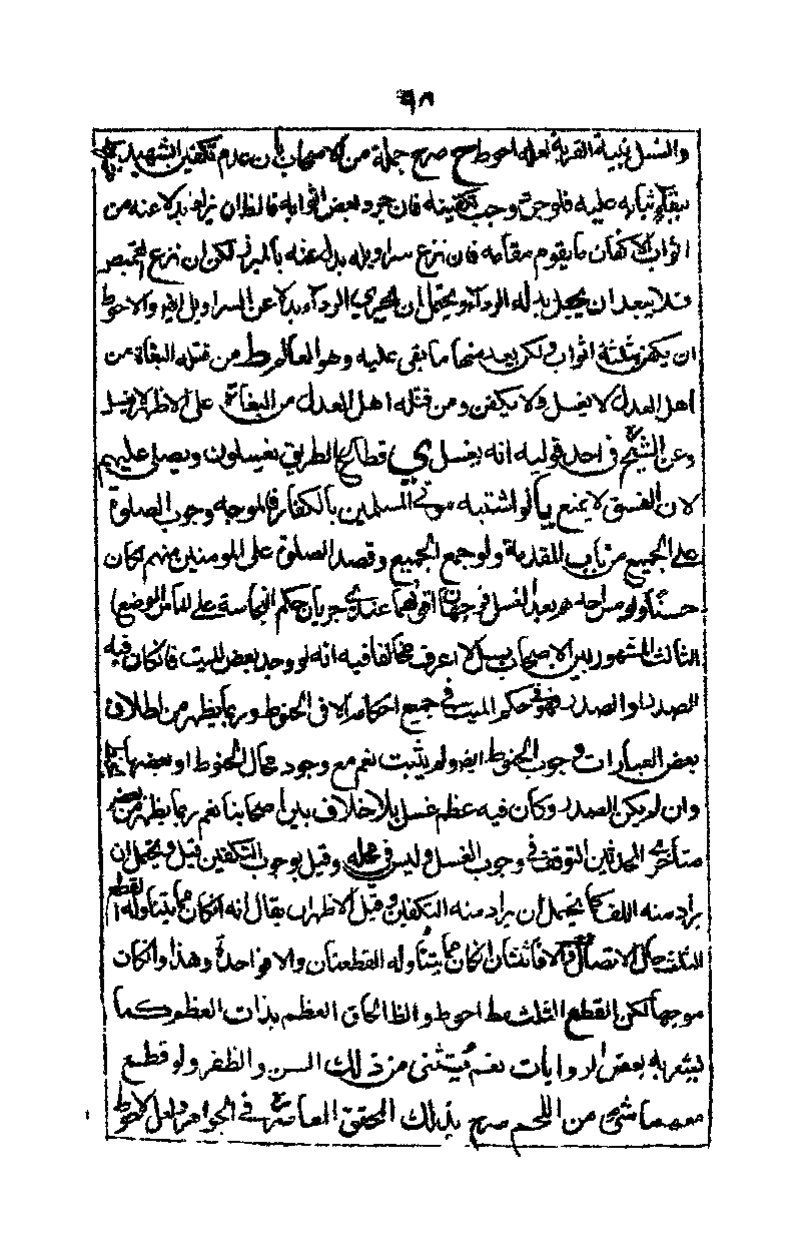 ٩٨
والغسل بنية القربة لعله احوط ح صرح جملة من الاصحاب بان عدم تكفين الشهيد
ببقاء ثيابه عليه فلو جرد وجب تكفينه فان جرد بعض اثوابه فالظان يزاد بدلا عنه من
اثواب الاكفان ما يقوم مقامه فان نزع سراويله بدله عنه بالميزر لكن ان نزع القميص
فلا يبعد ان يجعل بدله الرداء ويحتمل ان يجزي الرداء بدلا عن السراويل ايضا والاحوط
ان يكفن بثلثة اثواب ولكن يعد منها ما بقى عليه وهو العالم ط من قتله البغاة من
اهل العدل لا يغسل ولا يكفن ومن قتله اهل العدل من البغاة على الاظهر لا يغسل
وعن الشيخ في احد قوليه انه يغسل ي قطاع الطريق يغسلون ويصلى عليهم
لان الفسق لا يمنع يا لو اشتبه موتى المسلمين بالكفار فالموجه وجوب الصلوة
على الجميع من باب المقدمة ولو جمع الجميع وقصد الصلوة على المومنين منهم كان
حسنا ولو مس احدهم بعد الغسل فوجهان اقوىهما عندي جريان حكم النجاسة على الماس الموضع
الثالث المشهور بين الاصحاب بل لا اعرف مخالفا فيه انه لو وجد بعض الميت فان كان فيه
الصدر او الصدر فهو في حكم الميت في جميع احكامه الا في الحنوط وربما يظهر من اطلاق
بعض العبارات وجوب الحنوط ايض ولم يثبت نعم مع وجود محال الحنوط او بعضها
وان لم يكن الصدر وكان فيه عظم غسل بلا خلاف بين اصحابنا نعم ربما يظهر من بعض
متأخري المحدثين التوقف في وجوب الغسل وليس في محله وقيل بوجوب التكفين قيل ويحتمل ان
يراد منه اللف كما يحتمل ان يراد منه التكفين وقيل الاظهر ان يقال انه ان كان مما يتناوله القطع
الثلث حال الاتصال فكلا فاثنتان ان كان مما يتناوله القطعتان والا فواحدة وهذا وان كان
موجها لكن القطع الثلث مط احوط والظ الحاق العظم بذات العظم كما
يشعر به بعض الروايات نعم يستثنى من ذلك السن والظفر ولو قطع
معهما شيء من اللحم صرح بذلك المحقق المعاصر في الجواهر ولعل الاحوط